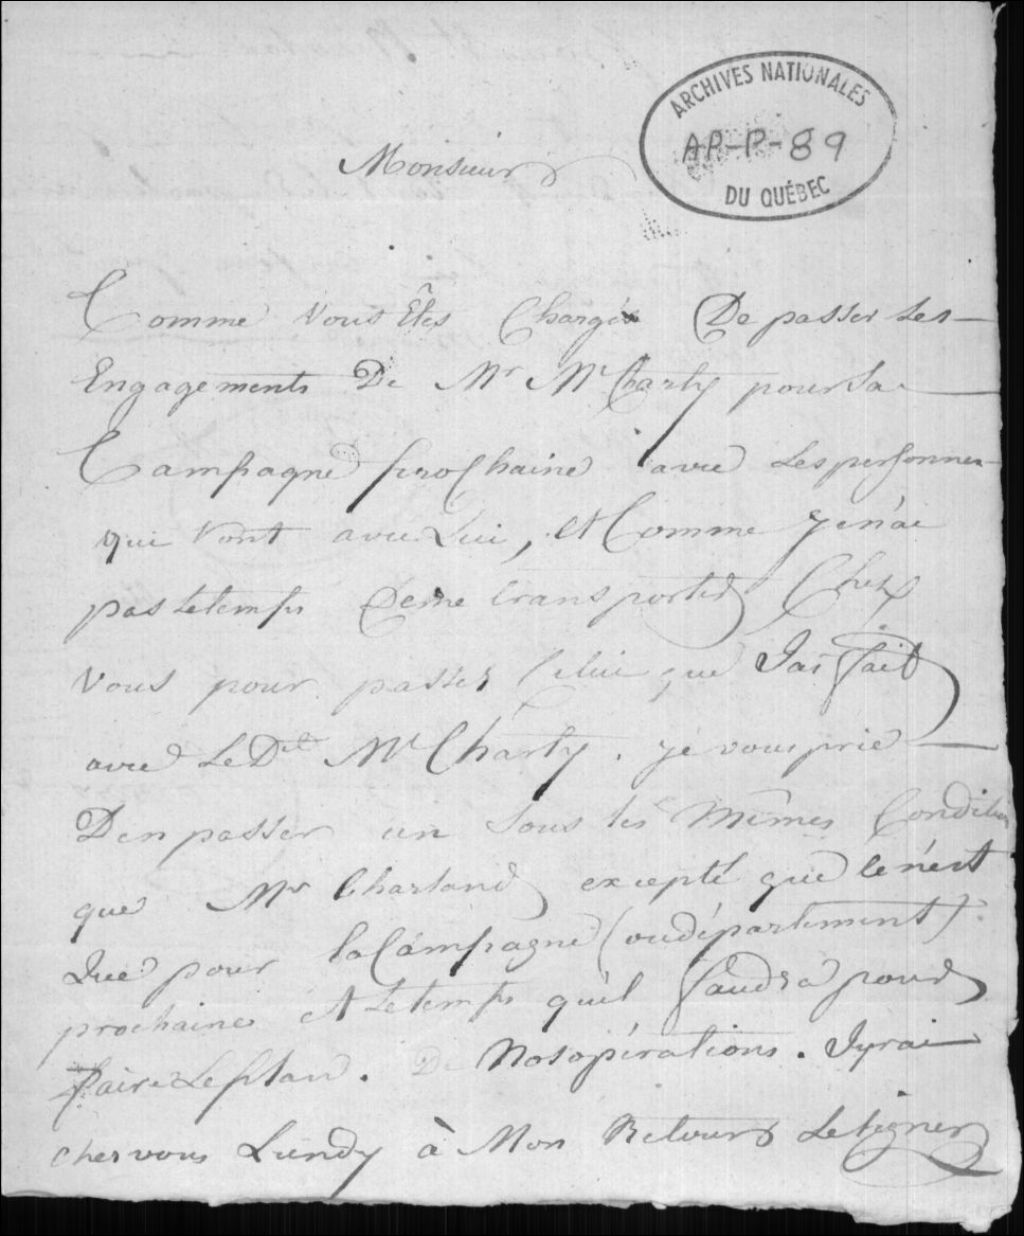 ARCHIVES NATIONALES
AP-P-89
DU QUÉBEC
Monsieur
Comme Vous Êtes Chargés De passer Les
Engagements De Mr Mc Charty pour La
Campagne prochaine avec Les personnes
qui Vont avec Lui, Et Comme Je n'ai
pas Le temps De me transporter Chez
Vous pour passer Celui que Jai fait
avec Le Dit Mc Charty. je vous prie
Den passer un Sous les Mêmes Condition
que Mr Charland excepté que ce n'est
Que pour la Campagne (ou département)
prochaine Et Le temps qu'il faudra pour
faire Le plan. De Nos opérations. Jyrai
chez vous Lundy à Mon Retour Le signer